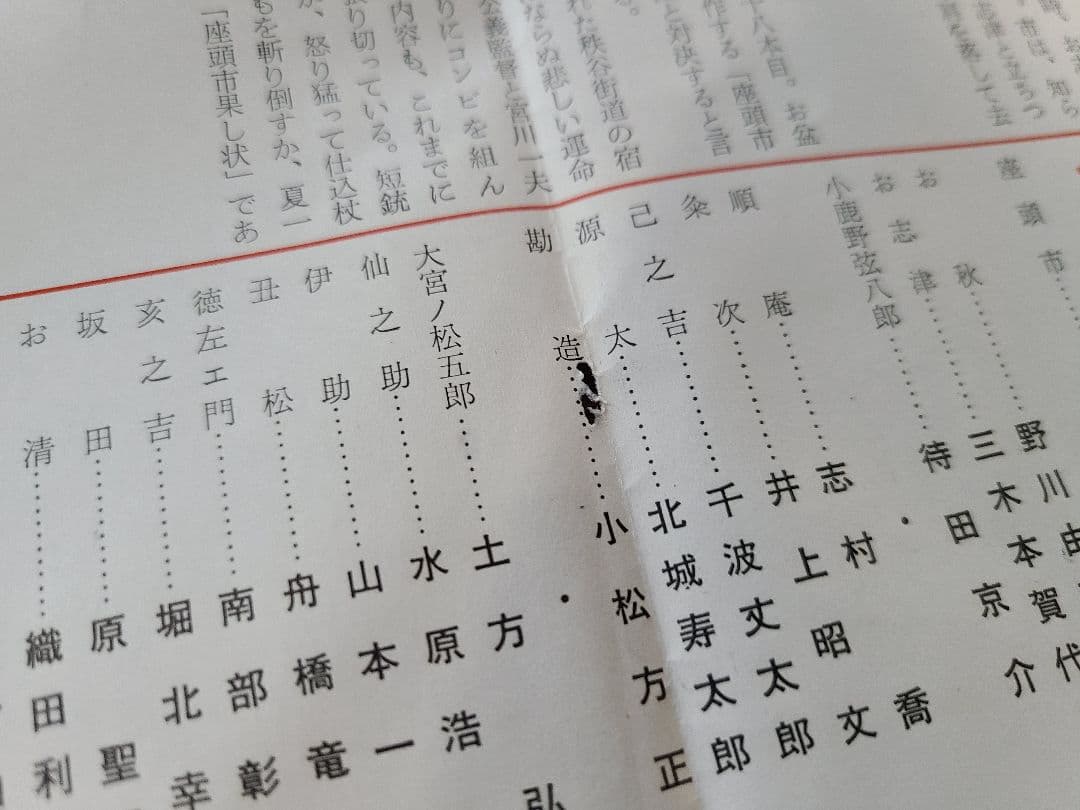 知ら
市は、
志津と立ちつ
肩を落して去
十八本目。お盆
作する「座頭市
と対決すると言
る。
れた秩谷街道の宿
ならぬ悲しい運命
公義監督と宮川一夫
りにコンビを組ん
内容も、これまでに
張り切っている。短銃
か、怒り猛って仕込杖
もを斬り倒すか、夏一
「座頭市果し状」であ
座頭市…………
お秋…………野川由
お志津…………三木本賀代
小鹿野弦八郎…………待田京介
順庵…………志村喬
粂次…………井上昭文
己之吉…………千波丈太郎
源太…………北城寿太郎
勘造…………小松方正
大宮ノ松五郎…………土方弘
仙之助…………水原浩一
伊助…………山本一
丑松…………舟橋竜
徳左ェ門…………南部彰
亥之吉…………堀北幸
坂田…………原聖
お清…………織田利